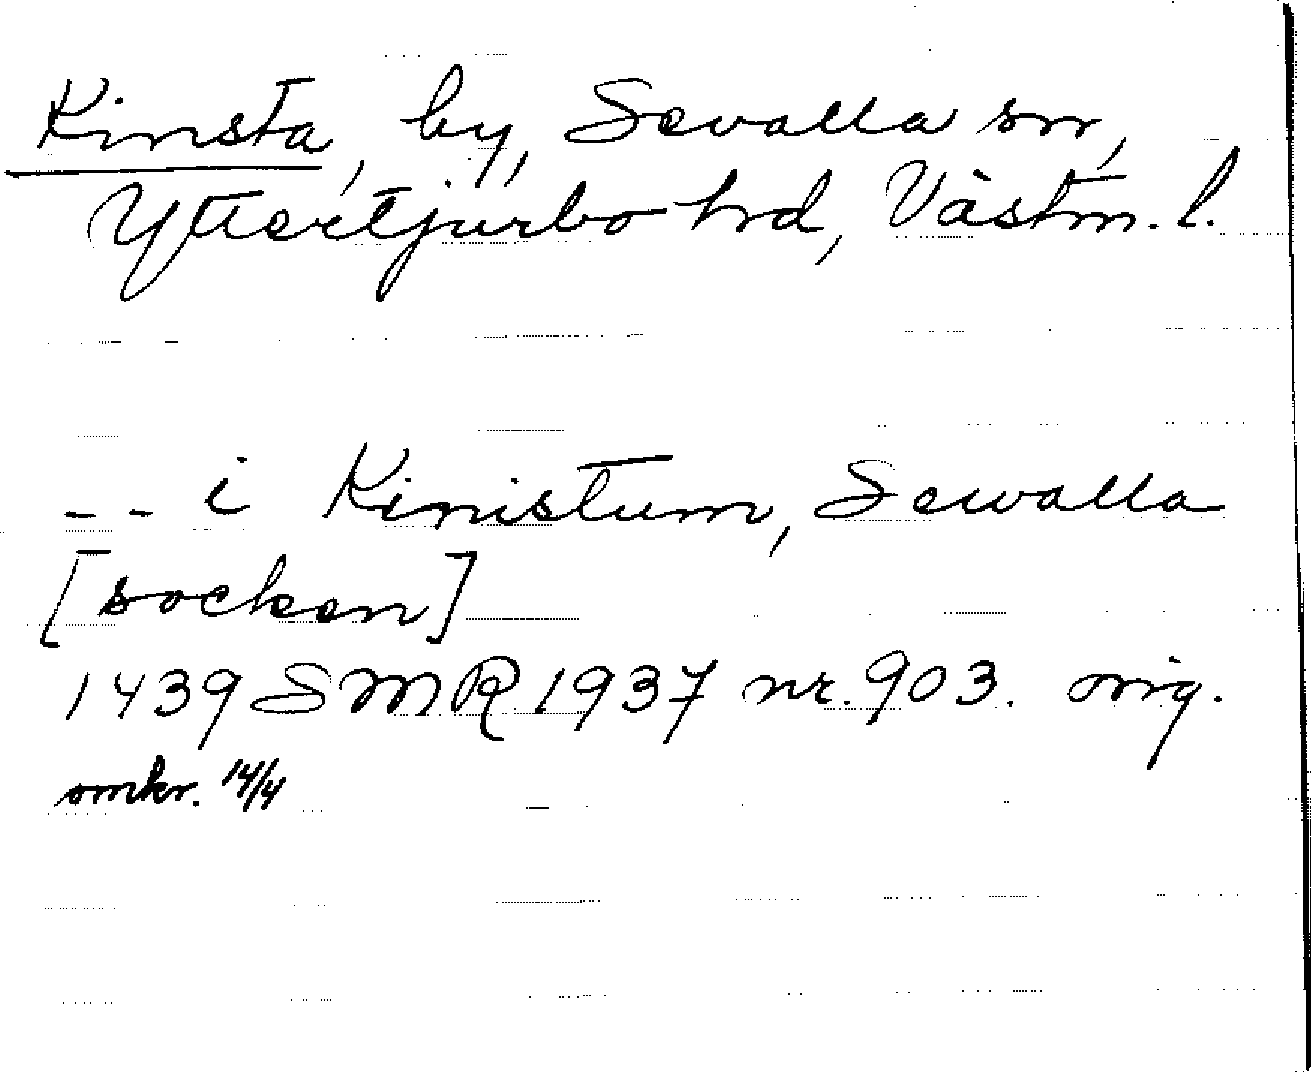 Kinsta, by, Sevalla sn,
Yttertjurbo hd, Västm. l.
-- i Kinistum, Sewalla
[socken]
1439 SMR 1937 nr. 903. orig.
omkr. 14/4